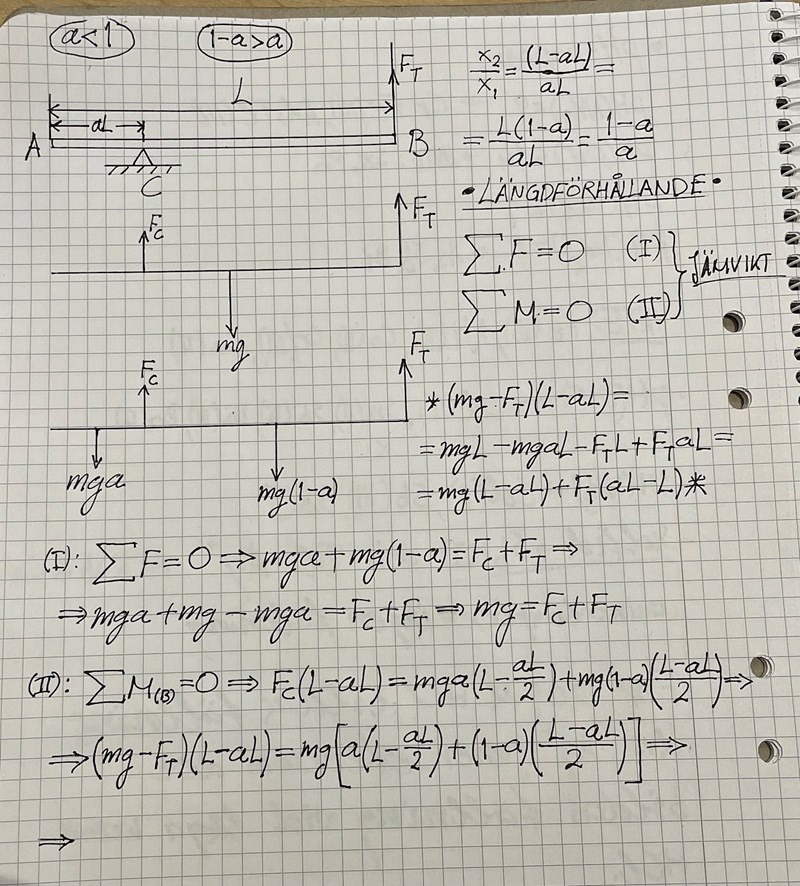 a<1
1-a>a
F_T
L
aL
A
B
C
x₂/x₁ = (L-aL)/aL =
= L(1-a)/aL = (1-a)/a
• LÄNGDFÖRHÅLLANDE •
F_C
F_T
mg
∑F=0 (I)
∑M=0 (II)
JÄMVIKT
F_C
F_T
mga
mg(1-a)
*(mg-F_T)(L-aL)=
=mgL-mgaL-F_TL+F_TaL=
=mg(L-aL)+F_T(aL-L)*
(I): ∑F=0 ⇒ mga+mg(1-a)=F_C+F_T ⇒
⇒ mga+mg-mga=F_C+F_T ⇒ mg=F_C+F_T
(II): ∑M_(B)=0 ⇒ F_C(L-aL)=mga(L-aL/2)+mg(1-a)((L-aL)/2) ⇒
⇒ (mg-F_T)(L-aL)=mg[a(L-aL/2)+(1-a)((L-aL)/2)] ⇒
⇒